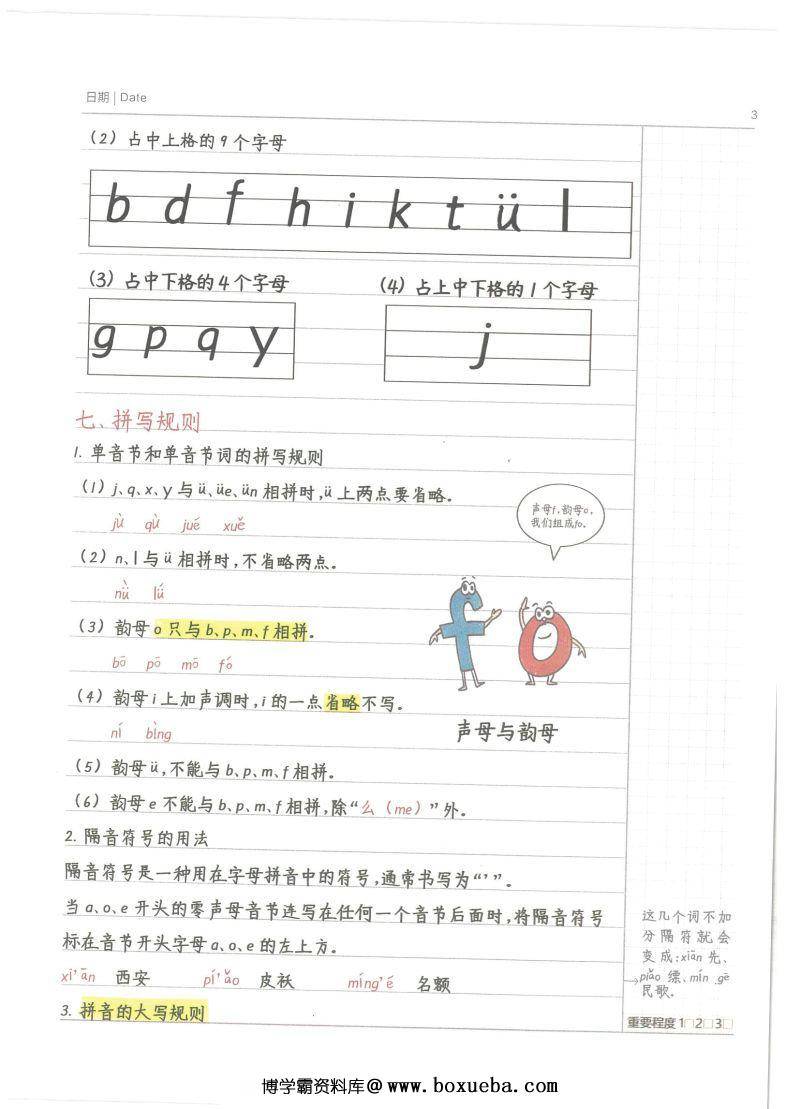 日期 | Date
3
(2) 占中上格的9个字母
b d f h i k t ü l
(3) 占中下格的4个字母
(4) 占上中下格的1个字母
g p q y
j
七、拼写规则
1. 单音节和单音节词的拼写规则
(1) j、q、x、y 与 ü、üe、ün 相拼时,ü 上两点要省略。
jù qù jué xuě
声母f,韵母o,
我们组成fo。
(2) n、l 与 ü 相拼时,不省略两点。
nǜ lǘ
(3) 韵母 o 只与 b、p、m、f 相拼。
bō pō mō fó
f o
(4) 韵母 i 上加声调时,i 的一点省略不写。
ní bìng
声母与韵母
(5) 韵母 ü,不能与 b、p、m、f 相拼。
(6) 韵母 e 不能与 b、p、m、f 相拼,除“么(me)”外。
2. 隔音符号的用法
隔音符号是一种用在字母拼音中的符号,通常书写为“’”。
当 a、o、e 开头的零声母音节连写在任何一个音节后面时,将隔音符号
标在音节开头字母 a、o、e 的左上方。
xī’ān 西安 pí’ǎo 皮袄 míng’é 名额
这几个词不加
分隔符就会
变成:xiān 先、
piǎo 缥、mín gē
民歌。
3. 拼音的大写规则
重要程度 1□2□3□
博学霸资料库@www.boxueba.com